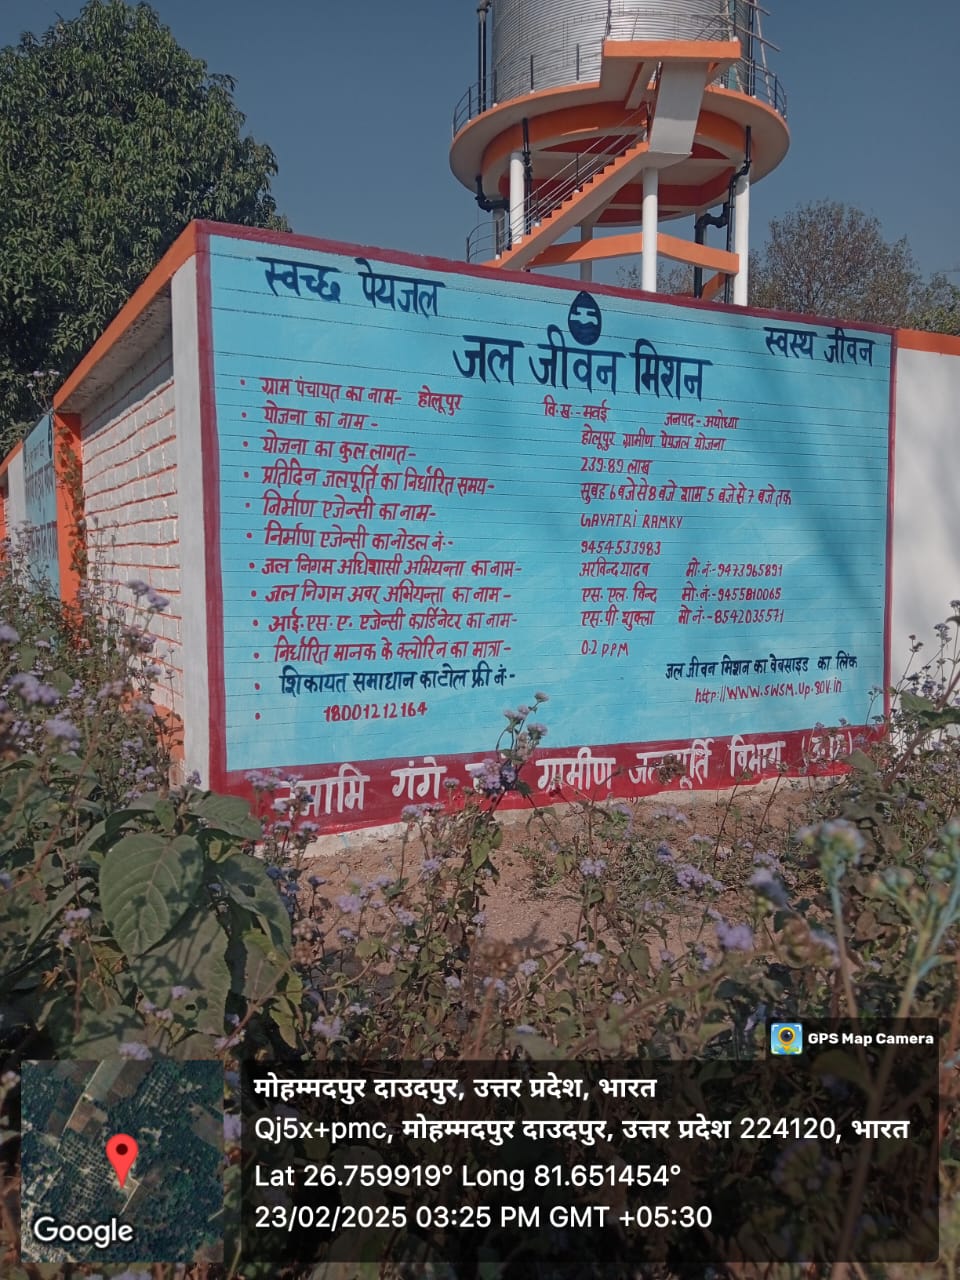 स्वच्छ पेयजल
स्वस्थ जीवन
जल जीवन मिशन
• ग्राम पंचायत का नाम- होलूपुर वि.ख.- मवई जनपद- अयोध्या
• योजना का नाम - होलूपुर ग्रामीण पेयजल योजना
• योजना का कुल लागत- 239.89 लाख
• प्रतिदिन जलपूर्ति का निर्धारित समय- सुबह 6 बजे से 8 बजे शाम 5 बजे से 7 बजे तक
• निर्माण एजेन्सी का नाम- GAYATRI RAMKY
• निर्माण एजेन्सी का नोडल नं.- 9454533983
• जल निगम अधिशासी अभियन्ता का नाम- अरविन्द यादव मो.नं.-9473965891
• जल निगम अवर अभियन्ता का नाम- एस. एल. विन्द मो.नं.-9455810065
• आई.एस.ए. एजेन्सी कार्डिनेटर का नाम- एस.पी. शुक्ला मो.नं.-8542035571
• निर्धारित मानक के क्लोरिन का मात्रा- 0.2 PPM
• शिकायत समाधान का टोल फ्री नं.-
• 18001212164
जल जीवन मिशन का वेबसाइड का लिंक
http://WWW.SWSM.Up.gov.in
नमामि गंगे ग्रामीण जलपूर्ति विभाग (उ.प्र.)
GPS Map Camera
मोहम्मदपुर दाउदपुर, उत्तर प्रदेश, भारत
Qj5x+pmc, मोहम्मदपुर दाउदपुर, उत्तर प्रदेश 224120, भारत
Lat 26.759919° Long 81.651454°
23/02/2025 03:25 PM GMT +05:30
Google